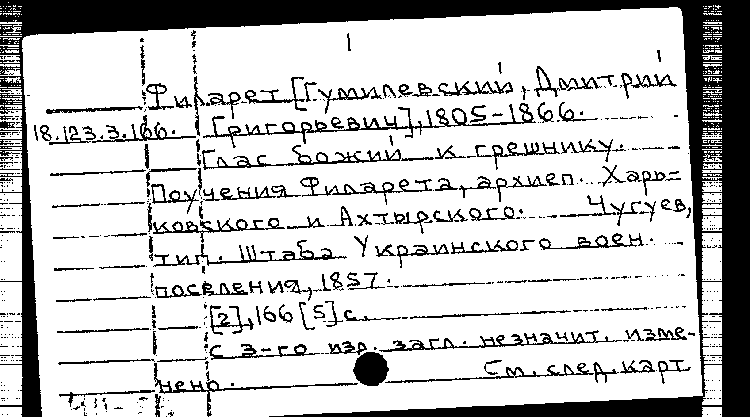 1
Филарет [Гумилевский, Дмитрий
18.123.3.166. Григорьевич], 1805-1866.
Глас божий к грешнику.
Поучения Филарета, архиеп. Харь=
ковского и Ахтырского. Чугуев,
тип. Штаба Украинского воен.
поселения, 1857.
[2], 166 [5] с.
с 3-го изд. загл. незначит. изме-
нено. См. след. карт